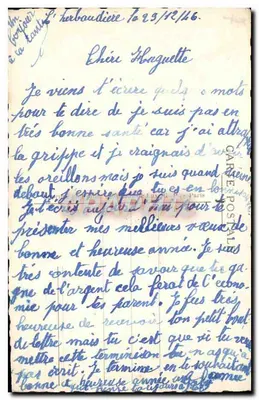 un bonjour à ta famille
L'herbaudière le 29/12/46.
Chère Huguette
Je viens t'écrire quelq mots
pour te dire de je suis pas en
très bonne santé car j'ai attrapé
la grippe et je craignais d'avoir
les oreillons mais je suis quand
debout j'espère que tu es en bonne
Je t'écris pour te
présenter mes meilleures vœux de
bonne et heureuse année. Je suis
très contente de savoir que tu ga
gne de l'argent cela ferat de l'econo
mie pour tes parent. Je fus très
heureuse de recevoir ton petit bout
de lettre mais tu c'est que si tu
mettre cette terminison tu n'as
pas écrit. Je termine en te souhaitant
bonne heureuse année
CARTE POSTALE